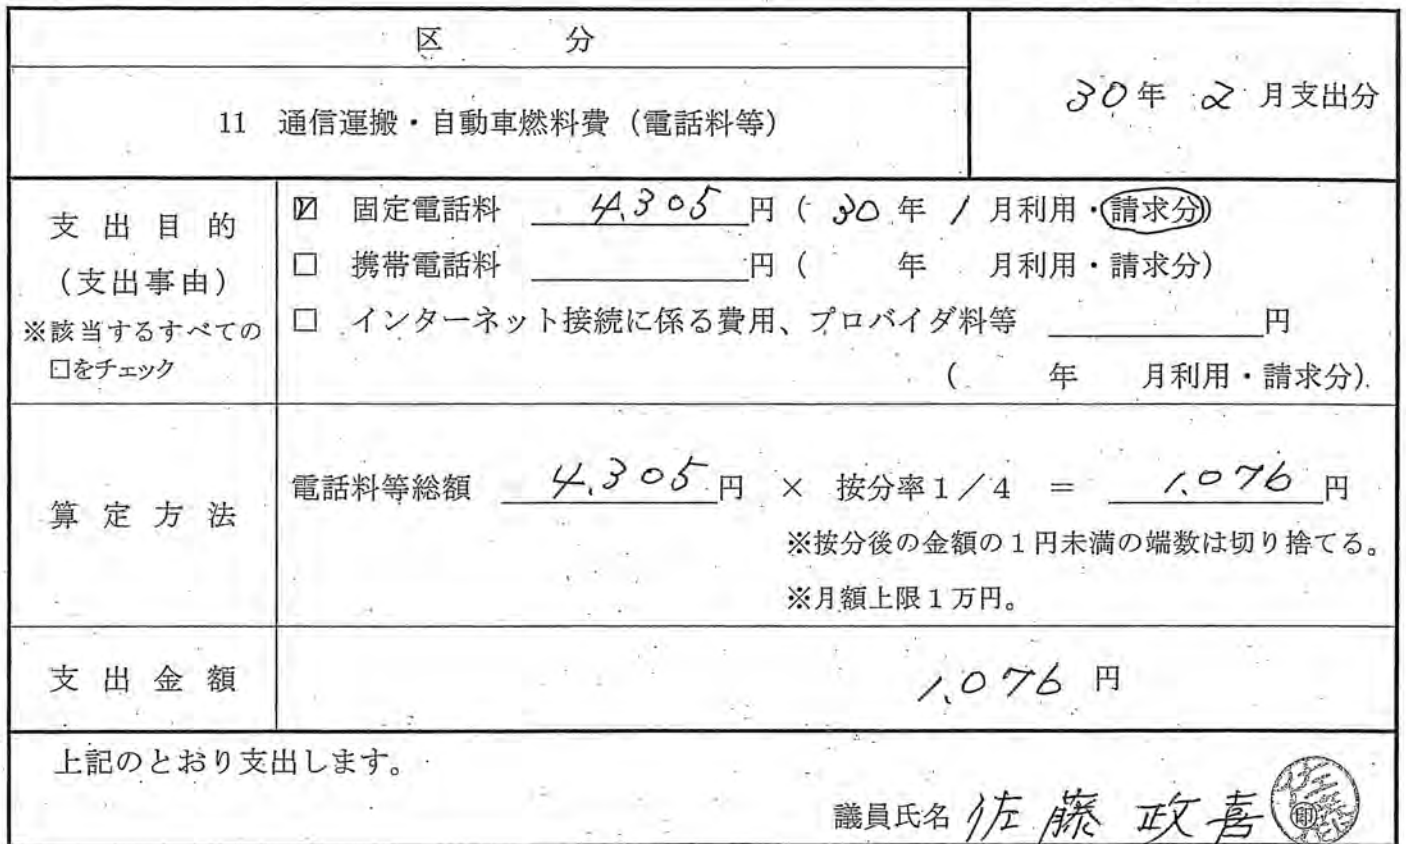 区 分
11 通信運搬・自動車燃料費（電話料等）
30年 2月支出分
支出目的
（支出事由）
※該当するすべての
□をチェック
☑ 固定電話料 4,305円（30年1月利用・請求分）
□ 携帯電話料 円（ 年 月利用・請求分）
□ インターネット接続に係る費用、プロバイダ料等 円
（ 年 月利用・請求分）
算定方法
電話料等総額 4,305円 × 按分率1／4 ＝ 1,076円
※按分後の金額の1円未満の端数は切り捨てる。
※月額上限1万円。
支出金額
1,076円
上記のとおり支出します。
議員氏名 佐藤 政喜 印